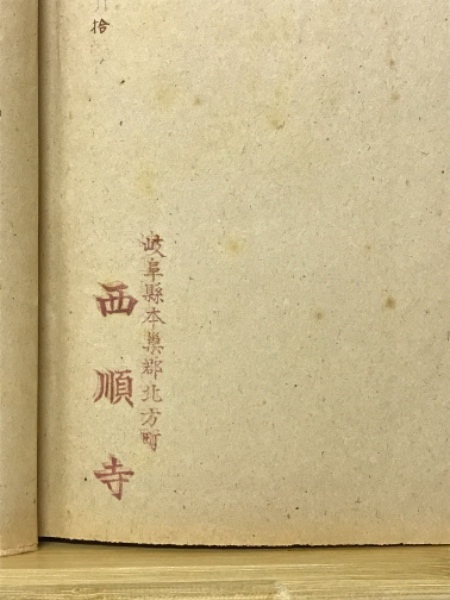 拾
岐阜縣本巣郡北方町
西順寺